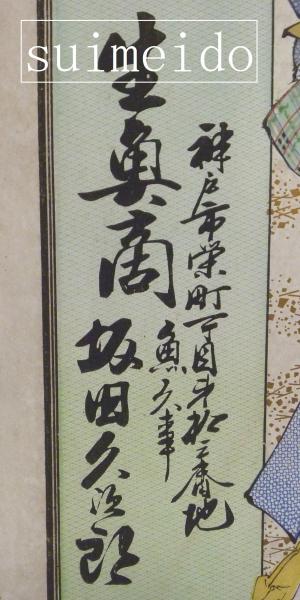 suimeido
神戸市栄町丁目第拾三番地
魚久事
生魚商
坂田久治郎